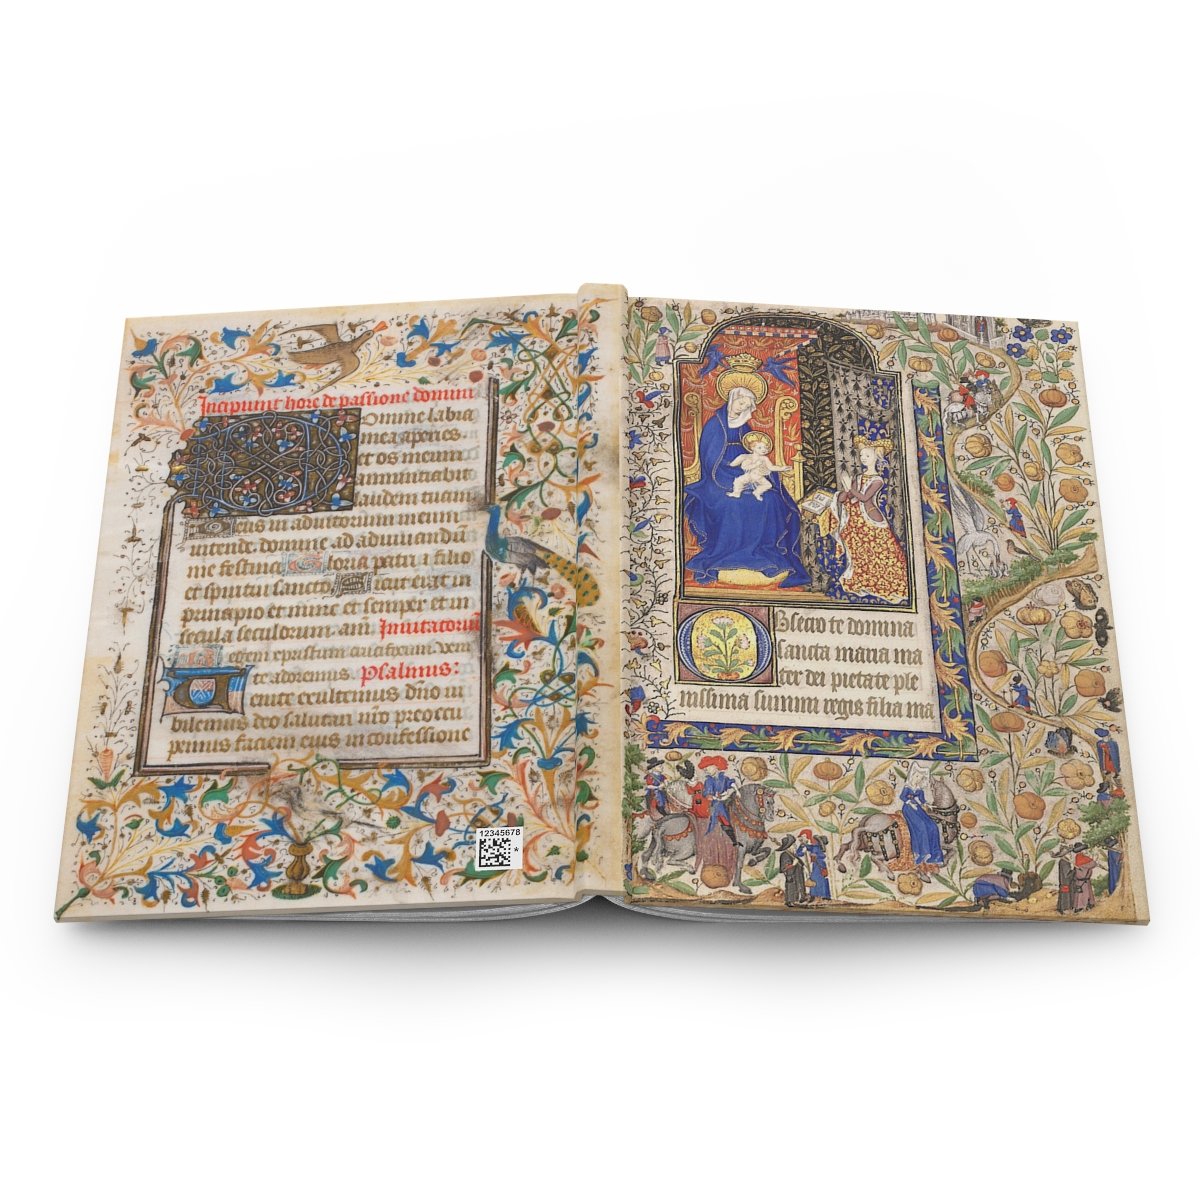 Incipiunt hore de passione domini
Domine labia
mea aperies.
et os meum
annunciabit
laudem tuam
Deus in adiutorium meum
intende. domine ad adiuvandū
me festina. Gloria patri et filio
et spiritui sancto Sicut erat in
principio et nunc et semper et in
secula seculorum. am. Invitatoriū
crucifixum. veni
te adoremus. Psalmus:
Venite exultemus dño iu
bilemus deo salutari nr̄o preoccu
pemus faciem eius in confessione
12345678
*
Obsecro te domina
sancta maria ma
ter dei pietate ple
nissima summi regis filia ma